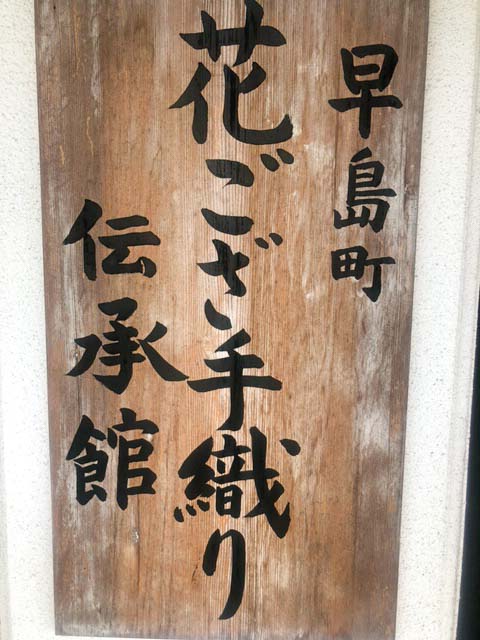 早島町
花ござ手織り
伝承館